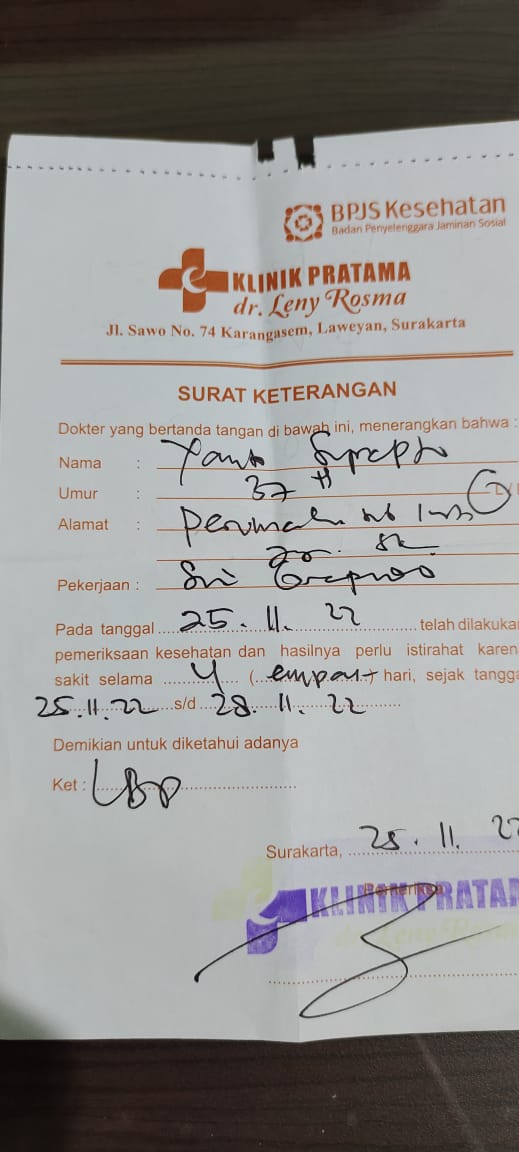 BPJS Kesehatan
Badan Penyelenggara Jaminan Sosial
KLINIK PRATAMA
dr. Leny Rosma
Jl. Sawo No. 74 Karangasem, Laweyan, Surakarta
SURAT KETERANGAN
Dokter yang bertanda tangan di bawah ini, menerangkan bahwa :
Nama :
Umur : 37
Alamat :
Pekerjaan : Sri
Pada tanggal 25. 11. 22 telah dilakukan
pemeriksaan kesehatan dan hasilnya perlu istirahat karen
sakit selama 4 (empat) hari, sejak tangga
25.11.22 s/d 28. 11. 22
Demikian untuk diketahui adanya
Ket : LBP
Surakarta, 25. 11. 22
Pemeriksa
KLINIK PRATAM
dr. Leny Rosm